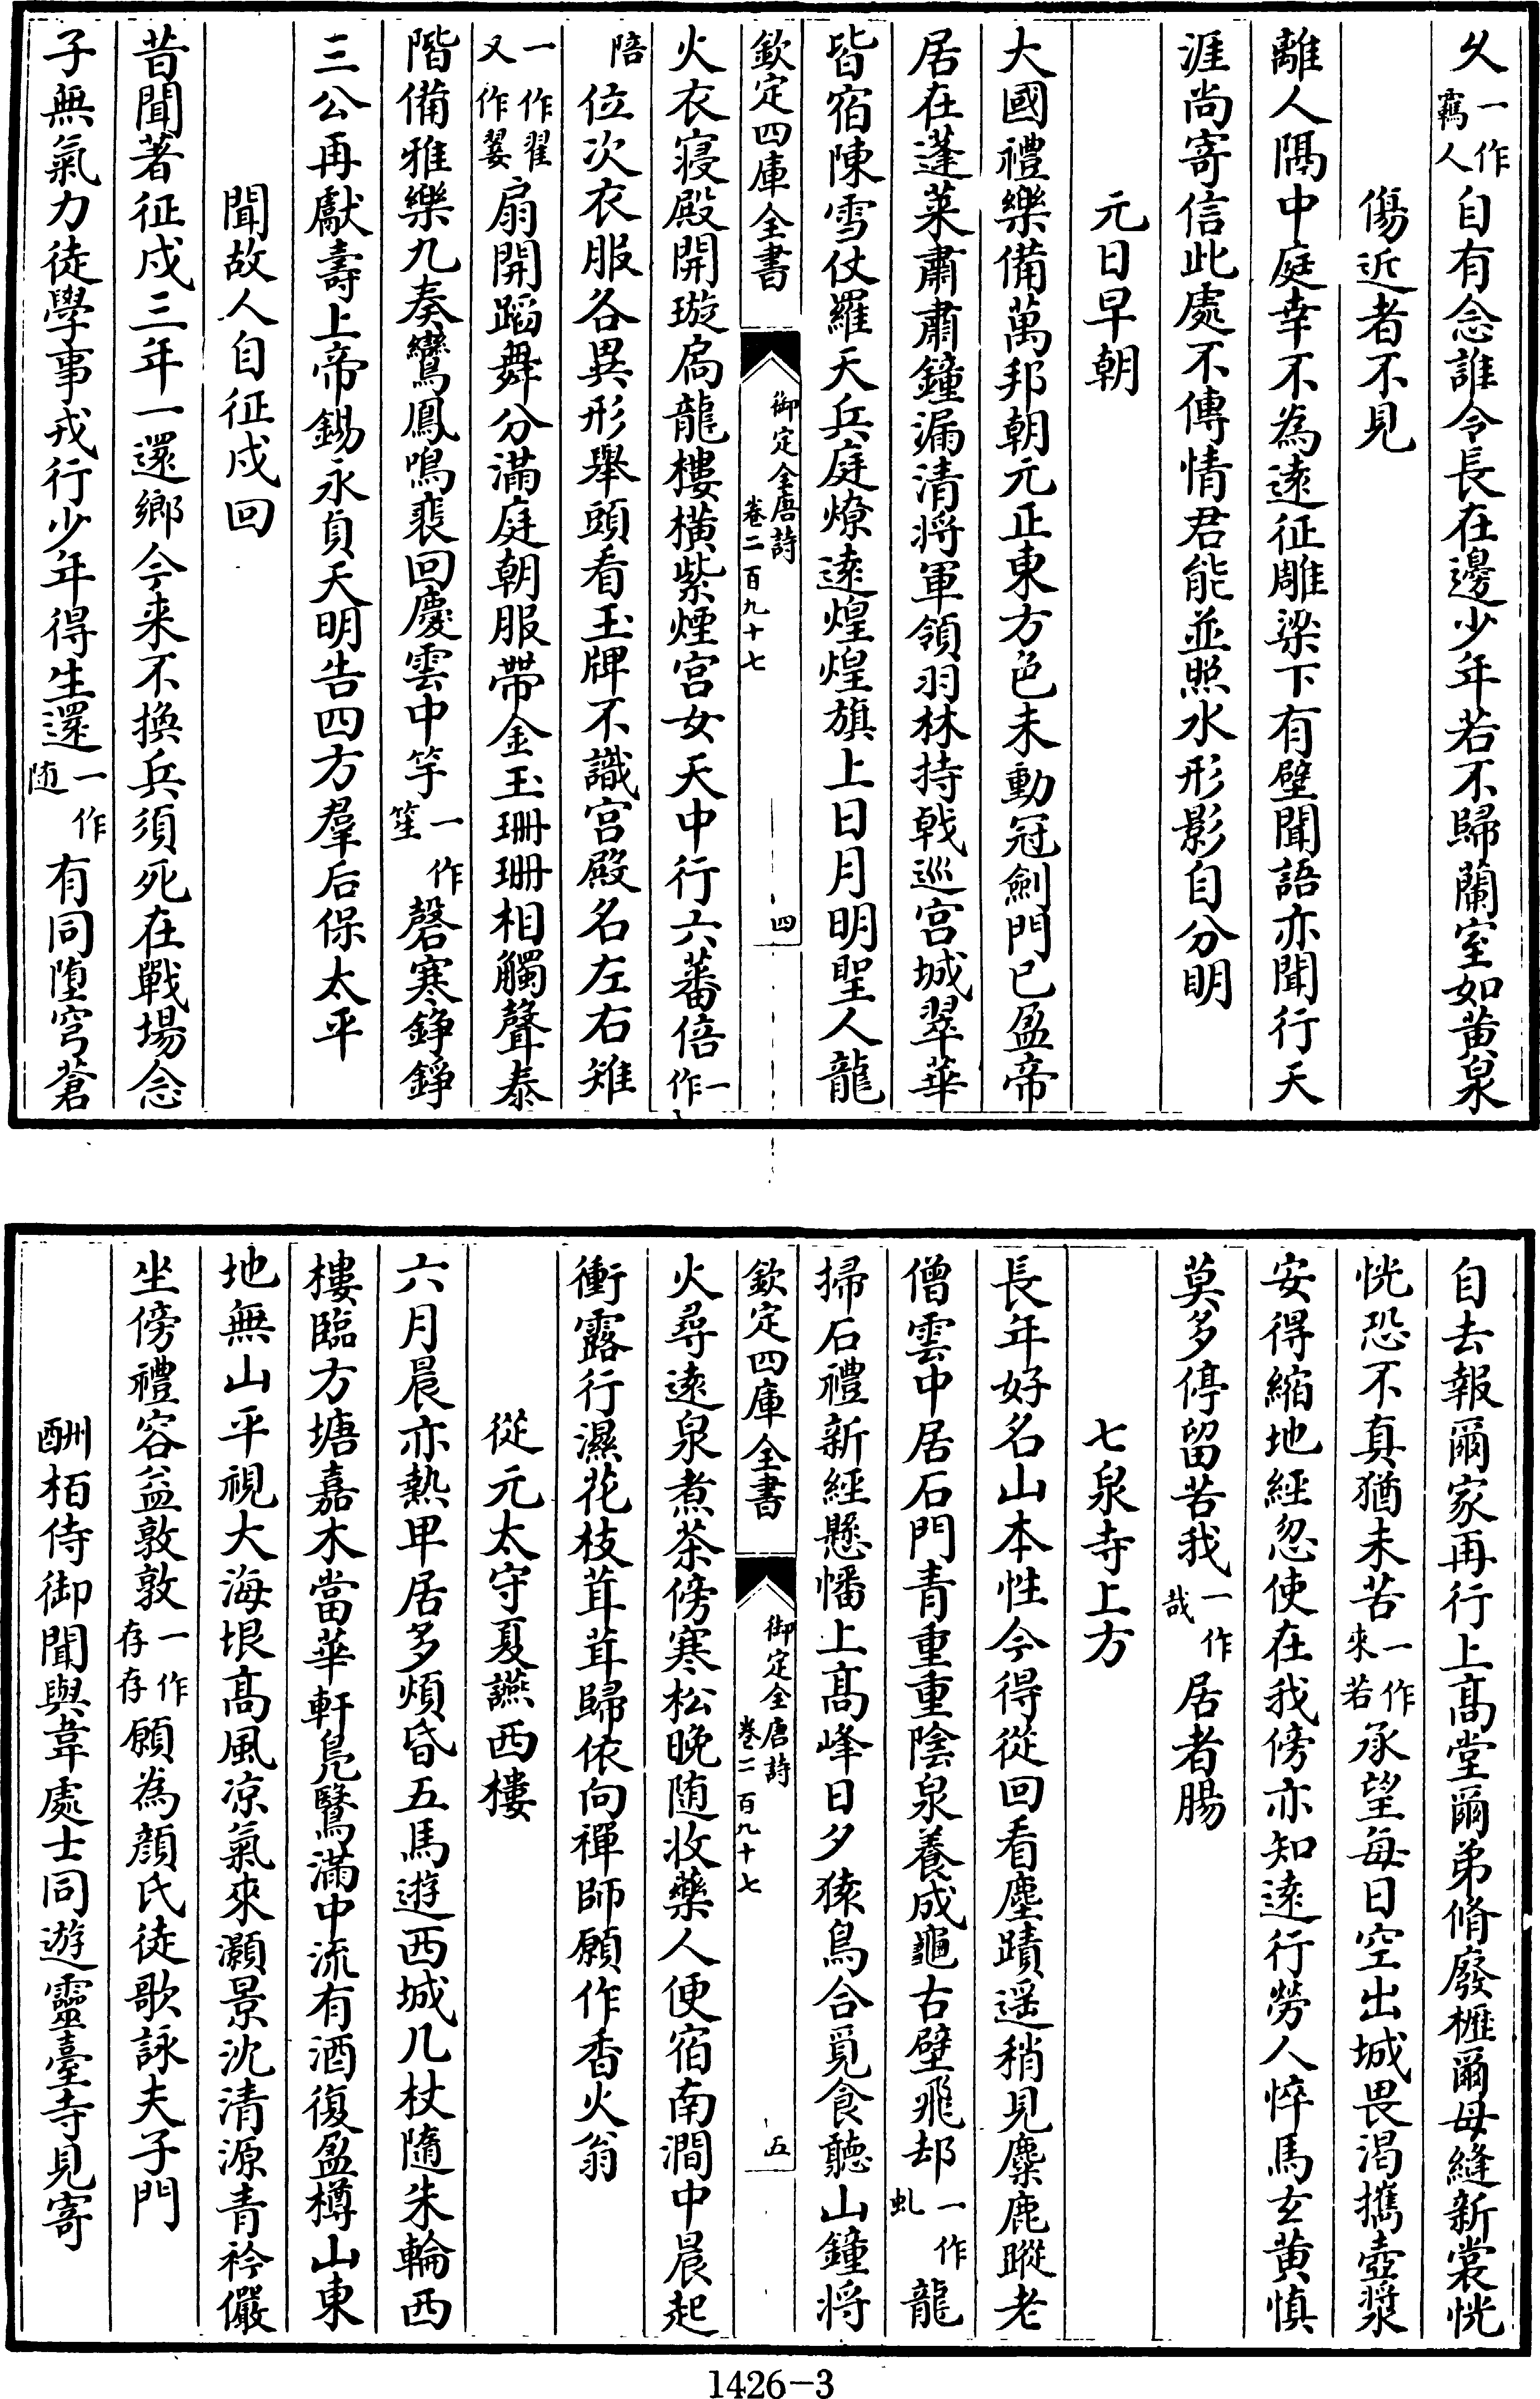 乆一作羇人自有念誰令長在邊少年若不歸蘭室如黄泉
傷近者不見
離人隔中庭幸不為遠征雕梁下有壁聞語亦聞行天
涯尚寄信此處不傳情君能並照水形影自分明
元日早朝
大國禮樂備萬邦朝元正東方色未動冠劍門已盈帝
居在蓬萊肅肅鐘漏清将軍領羽林持戟巡宫城翠華
皆宿陳雪仗羅天兵庭燎遠煌煌旗上日月明聖人龍
欽定四庫全書 御定全唐詩 卷二百九十七 四
火衣寝殿開璇扃龍樓橫紫煙宫女天中行六蕃倍一作
陪位次衣服各異形舉頭看玉牌不識宫殿名左右雉
一作翟又作翣扇開蹈舞分滿庭朝服帶金玉珊珊相觸聲泰
階備雅樂九奏鸞鳳鳴裴回慶雲中竽一作笙磬寒錚錚
三公再獻壽上帝錫永貞天明告四方羣后保太平
聞故人自征戍回
昔聞著征戍三年一還鄉今来不換兵須死在戰場念
子無氣力徒學事戎行少年得生還一作随有同墮穹蒼
自去報爾家再行上髙堂爾弟脩廢櫪爾母縫新裳恍
恍恐不真猶未苦一作來若承望每日空出城畏渴攜壺漿
安得縮地經忽使在我傍亦知遠行勞人悴馬玄黄慎
莫多停留苦我一作哉居者腸
七泉寺上方
長年好名山本性今得從回看塵蹟遥稍見麋鹿蹤老
僧雲中居石門青重重陰泉養成龜古壁飛却一作虬龍
掃石禮新經懸幡上髙峰日夕猿鳥合覓食聽山鐘将
欽定四庫全書 御定全唐詩 卷二百九十七 五
火尋遠泉煮茶傍寒松晚随收藥人便宿南澗中晨起
衝露行濕花枝茸茸歸依向禪師願作香火翁
從元太守夏讌西樓
六月晨亦熱卑居多煩昏五馬遊西城几杖隨朱輪西
樓臨方塘嘉木當華軒鳧鷖滿中流有酒復盈樽山東
地無山平視大海垠髙風凉氣來灝景沈清源青衿儼
坐傍禮容益敦敦一作存存願為顔氏徒歌詠夫子門
酬栢侍御聞與韋處士同遊靈臺寺見寄
1426-3